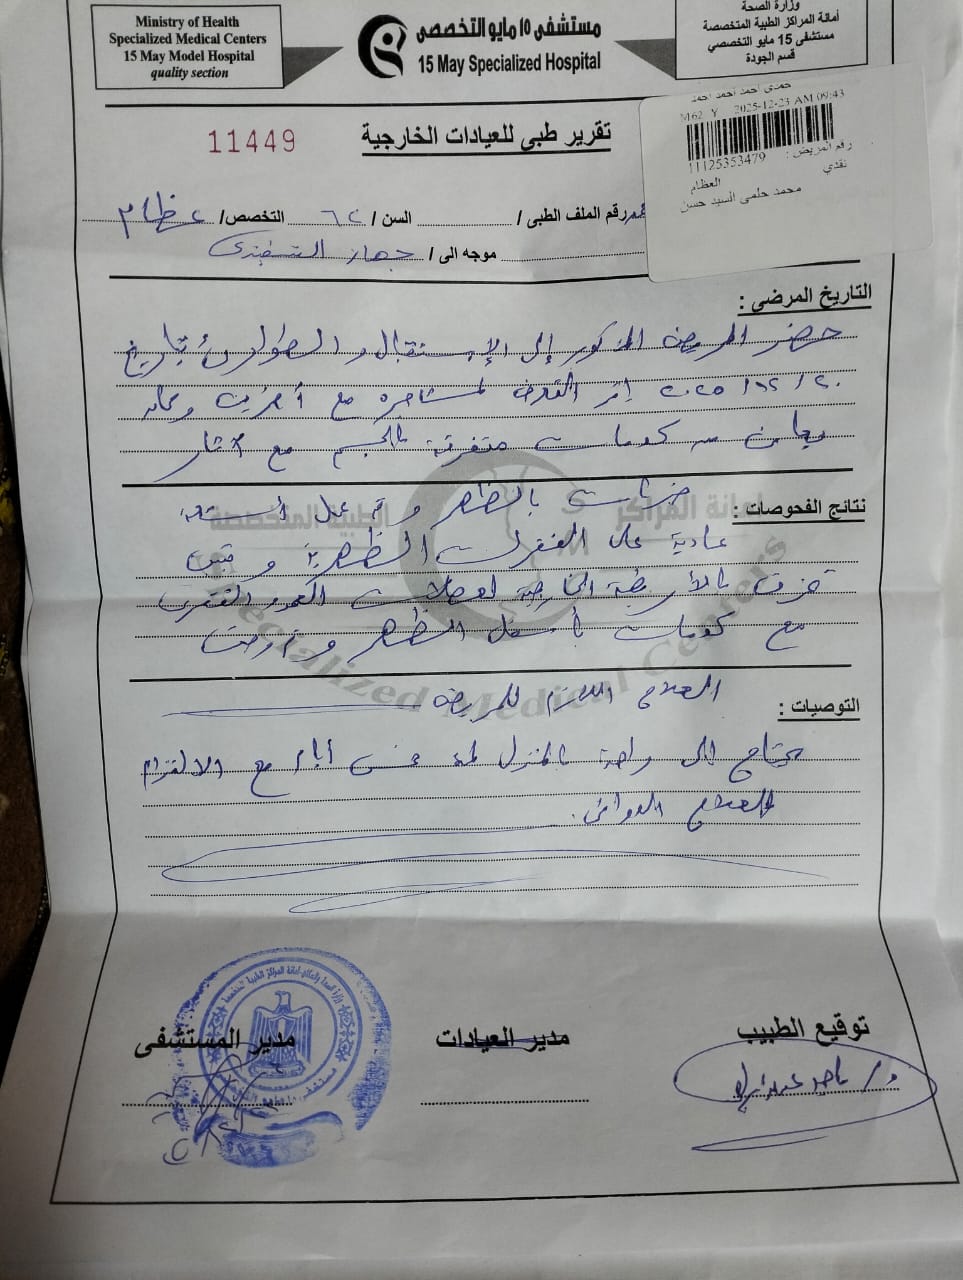 Ministry of Health
Specialized Medical Centers
15 May Model Hospital
quality section
مستشفى ١٥ مايو التخصصى
15 May Specialized Hospital
وزارة الصحة
أمانة المراكز الطبية المتخصصة
مستشفى 15 مايو التخصصي
قسم الجودة
حمدى احمد احمد احمد
M62 Y 2025-12-23 AM 09:43
رقم المريض : 11125353479
نقدي
العظام
محمد حلمى السيد حسن
تقرير طبى للعيادات الخارجية
11449
رقم الملف الطبى / السن / ٦٢ التخصص / عظام
موجه الى / جهاز التنفيذى
التاريخ المرضى :
حضر المريض المذكور إلى الإستقبال والطوارئ بتاريخ
٢٠ / ١٢ / ٢٠٢٥ إثر التعرض لمشاجرة مع آخرين وكان
يعانى من كدمات متفرقة بالجسم مع آثار
ضربات بالظهر وتم عمل أشعة
نتائج الفحوصات :
عادية على الفقرات الظهرية وتبين
تمزق بالأربطة الخارجية لعضلات العمود الفقرى
مع كدمات بأسفل الظهر و
العلاج اللازم للمريض
التوصيات :
يحتاج إلى راحة بالمنزل لمدة خمس أيام مع الالتزام
بالعلاج الدوائى .
أمانة المراكز الطبية المتخصصة
Specialized Medical Centers
توقيع الطبيب
مدير العيادات
مدير المستشفى
د /